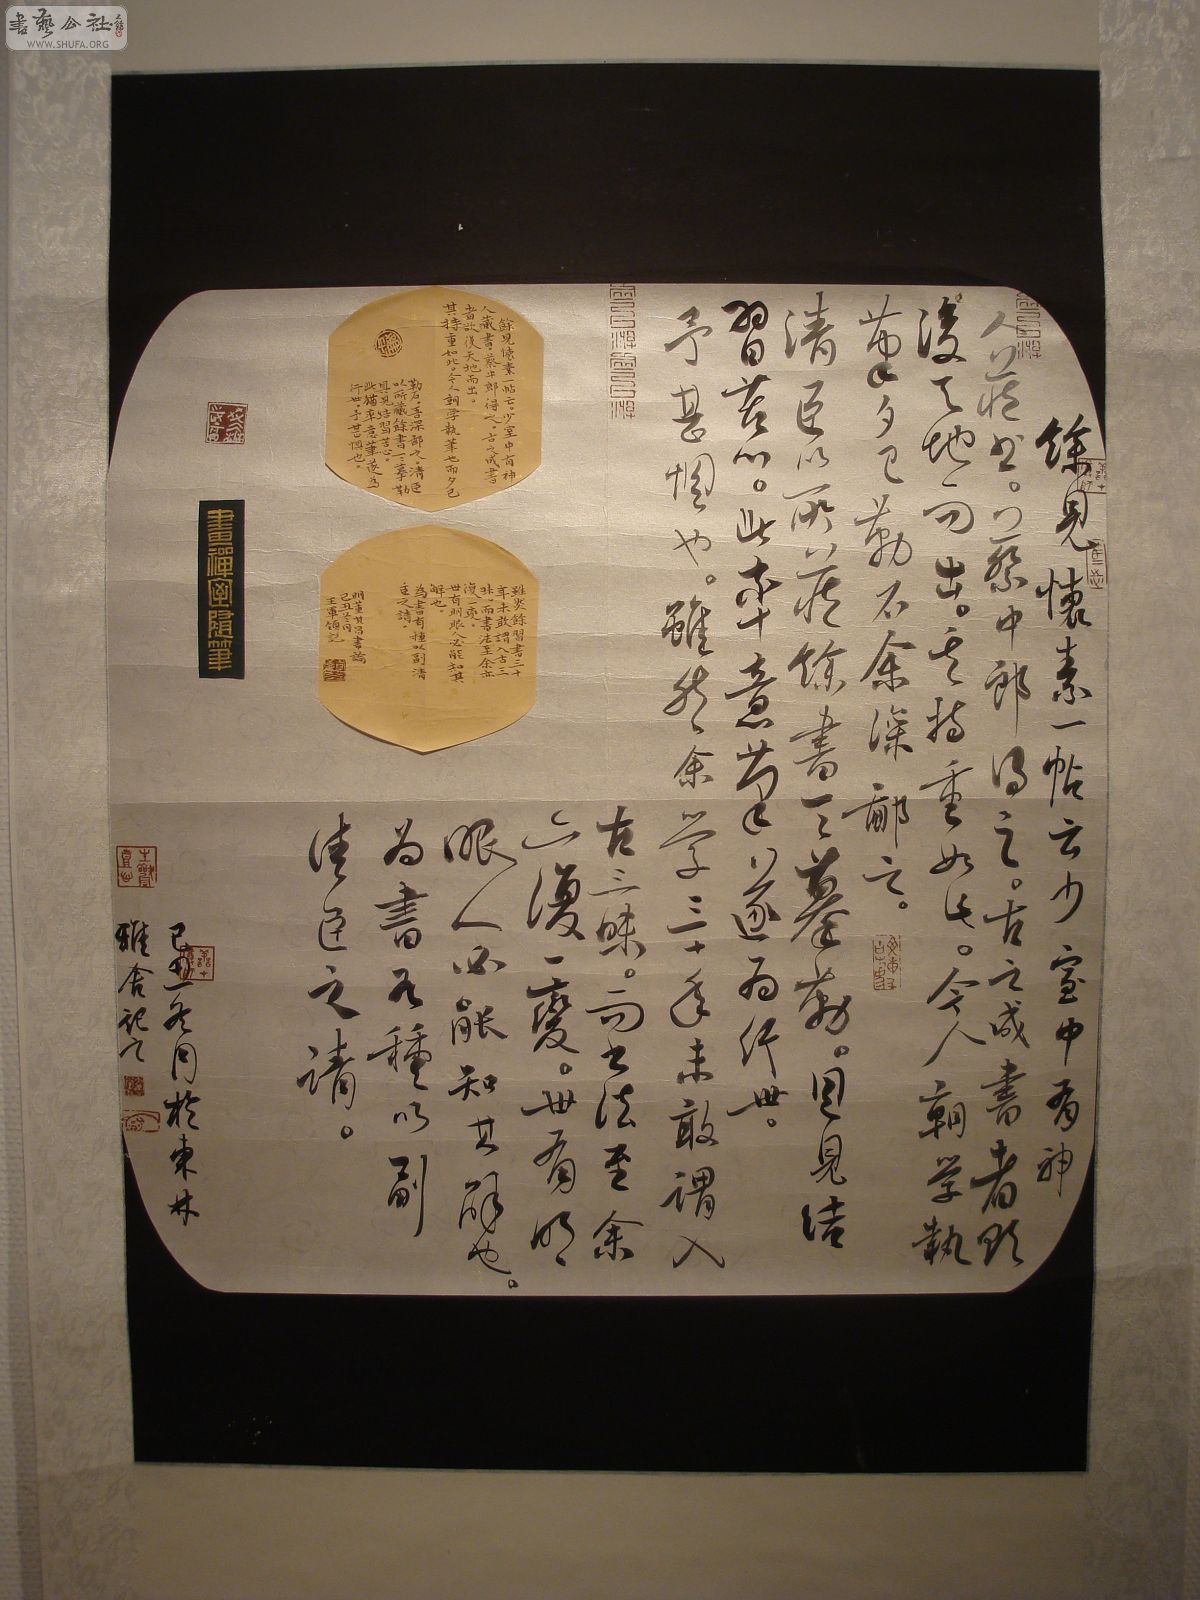 書藝公社
WWW.SHUFA.ORG
餘見懷素一帖云少室中有神
人藏书。以蔡中郎得之。古之成書者欲
後天地而出。其持重如此。今人朝学執
筆夕已勒石余深鄙之。
清臣以所藏餘書一一摹勒。因見結
習苦心。此率意筆遂为行世。
予甚惧也。雖然余学三十年未敢謂入
古三昧。而书法至余
亦復一變。世有明
眼人必能知其解也。
为書有種以副
清臣之請。
己丑冬月於東林
雅舍記之
餘見懷素一帖云。少室中有神
人藏書。蔡中郎得之。古之成書
者欲後天地而出。
其持重如此。今人朝学執筆也而夕已
勒石。吾深鄙之。清臣
以所藏餘書一一摹勒
具見結習苦心。
此猶率意筆遂为
行世。予甚惧也。
雖然餘習書三十
年未敢謂入古三
昧。而書法至余亦
復一變。
世有明眼人必能知其
解也。
為書有種以副清
臣之請。
明董其昌書論
己丑冬月
王軍領記
畫禪室隨筆